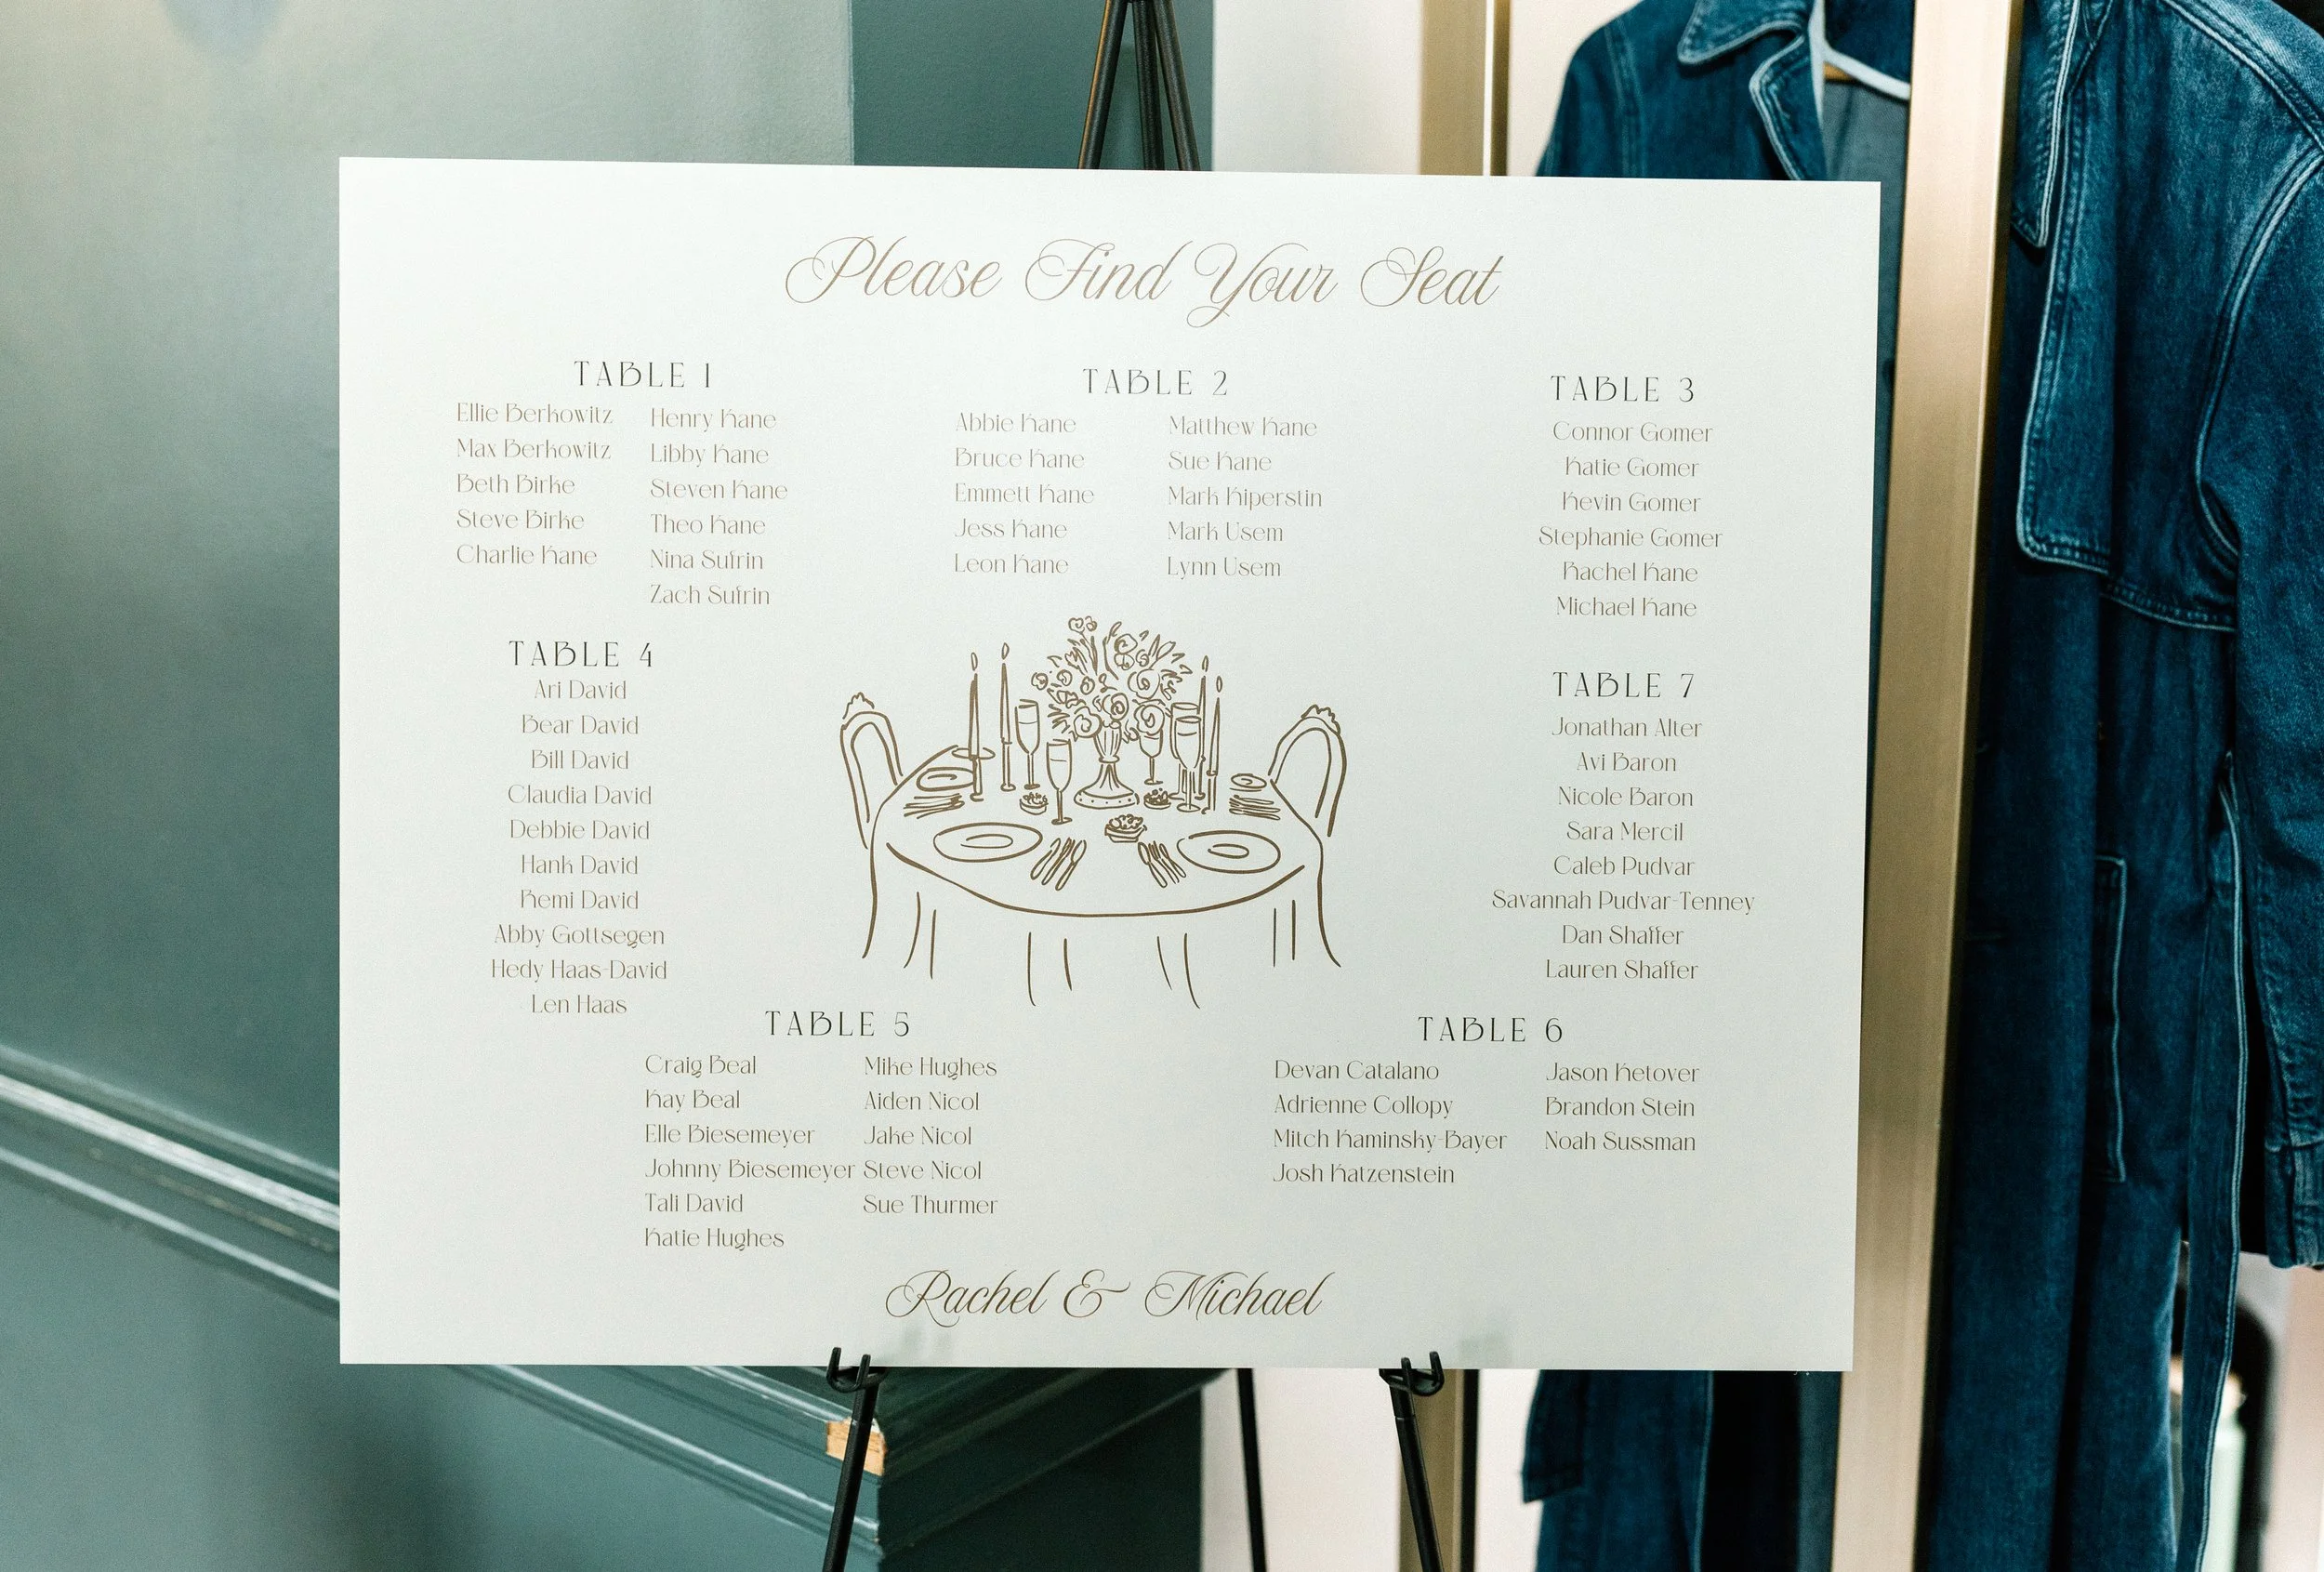 Please Find Your Seat
TABLE 1
Ellie Berkowitz
Max Berkowitz
Beth Birke
Steve Birke
Charlie Kane
Henry Kane
Libby Kane
Steven Kane
Theo Kane
Nina Sufrin
Zach Sufrin
TABLE 2
Abbie Kane
Bruce Kane
Emmett Kane
Jess Kane
Leon Kane
Matthew Kane
Sue Kane
Mark Kiperstin
Mark Usem
Lynn Usem
TABLE 3
Connor Gomer
Katie Gomer
Kevin Gomer
Stephanie Gomer
Rachel Kane
Michael Kane
TABLE 4
Ari David
Bear David
Bill David
Claudia David
Debbie David
Hank David
Remi David
Abby Gottsegen
Hedy Haas-David
Len Haas
TABLE 7
Jonathan Alter
Avi Baron
Nicole Baron
Sara Mercil
Caleb Pudvar
Savannah Pudvar-Tenney
Dan Shaffer
Lauren Shaffer
TABLE 5
Craig Beal
Kay Beal
Elle Biesemeyer
Johnny Biesemeyer
Tali David
Katie Hughes
Mike Hughes
Aiden Nicol
Jake Nicol
Steve Nicol
Sue Thurmer
TABLE 6
Devan Catalano
Adrienne Collopy
Mitch Kaminsky-Bayer
Josh Katzenstein
Jason Ketover
Brandon Stein
Noah Sussman
Rachel & Michael